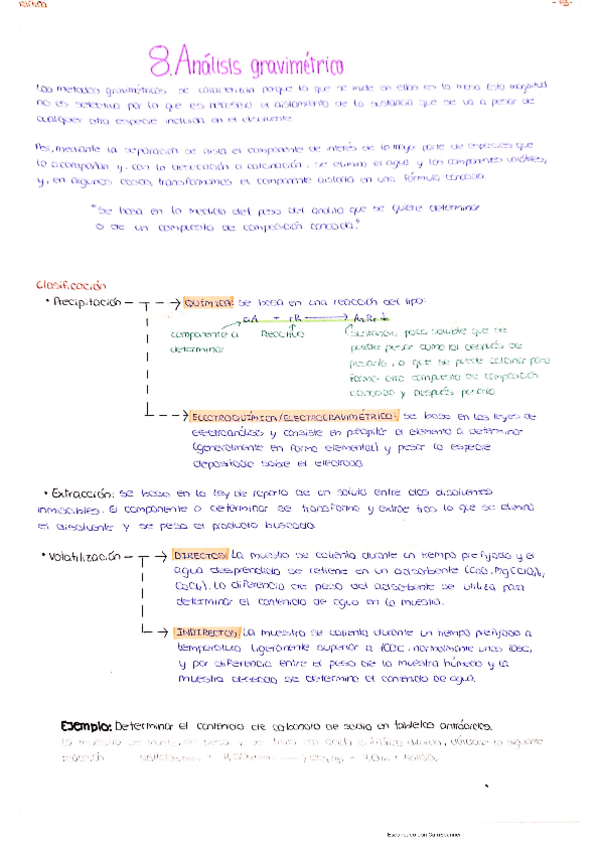 8. Análisis gravimétrico
Los métodos gravimétricos se caracterizan porque lo que se mide en ellos es la masa. Esta magnitud
no es selectiva por lo que es necesario el aislamiento de la sustancia que se va a pesar de
cualquier otra especie incluida en el disolvente.
Así, mediante la separación se aísla el componente de interés de la mayor parte de especies que
lo acompañan y, con la desecación o calcinación, se elimina el agua y los componentes volátiles,
y, en algunos casos, transformamos el componente aislado en una fórmula conocida.
"Se basa en la medida del peso del analito que se quiere determinar
o de un compuesto de composición conocida."
Clasificación
• Precipitación → QUÍMICA: se basa en una reacción del tipo:
aA + rR → AaRr ↓
componente a determinar
Reactivo
Sustancia poco soluble que se
puede pesar como tal después de
, o que se puede calcinar para
formar otro compuesto de composición
conocida y después pesarlo
→ ELECTROQUÍMICA/ELECTROGRAVIMÉTRICO: se basa en las leyes de
electroanálisis y consiste en precipitar el elemento a determinar
(generalmente en forma elemental) y pesar la especie
depositada sobre el electrodo.
• Extracción: se basa en la ley de reparto de un soluto entre dos disolventes
inmiscibles. El componente a determinar se transforma y extrae tras lo que se elimina
el disolvente y se pesa el producto buscado.
• Volatilización → DIRECTOS: La muestra se calienta durante un tiempo prefijado y el
agua desprendida se retiene en un adsorbente (CaO, Mg(ClO4)2,
CaCl2). La diferencia de peso del adsorbente se utiliza para
determinar el contenido de agua en la muestra.
→ INDIRECTOS: La muestra se calienta durante un tiempo prefijado a
temperatura ligeramente superior a 100C, normalmente unos 105C,
y por diferencia entre el peso de la muestra húmeda y la
muestra desecada se determina el contenido de agua.
Ejemplo: Determinar el contenido de carbonato de sodio en tabletas antiácidas.
Escaneado con CamScanner